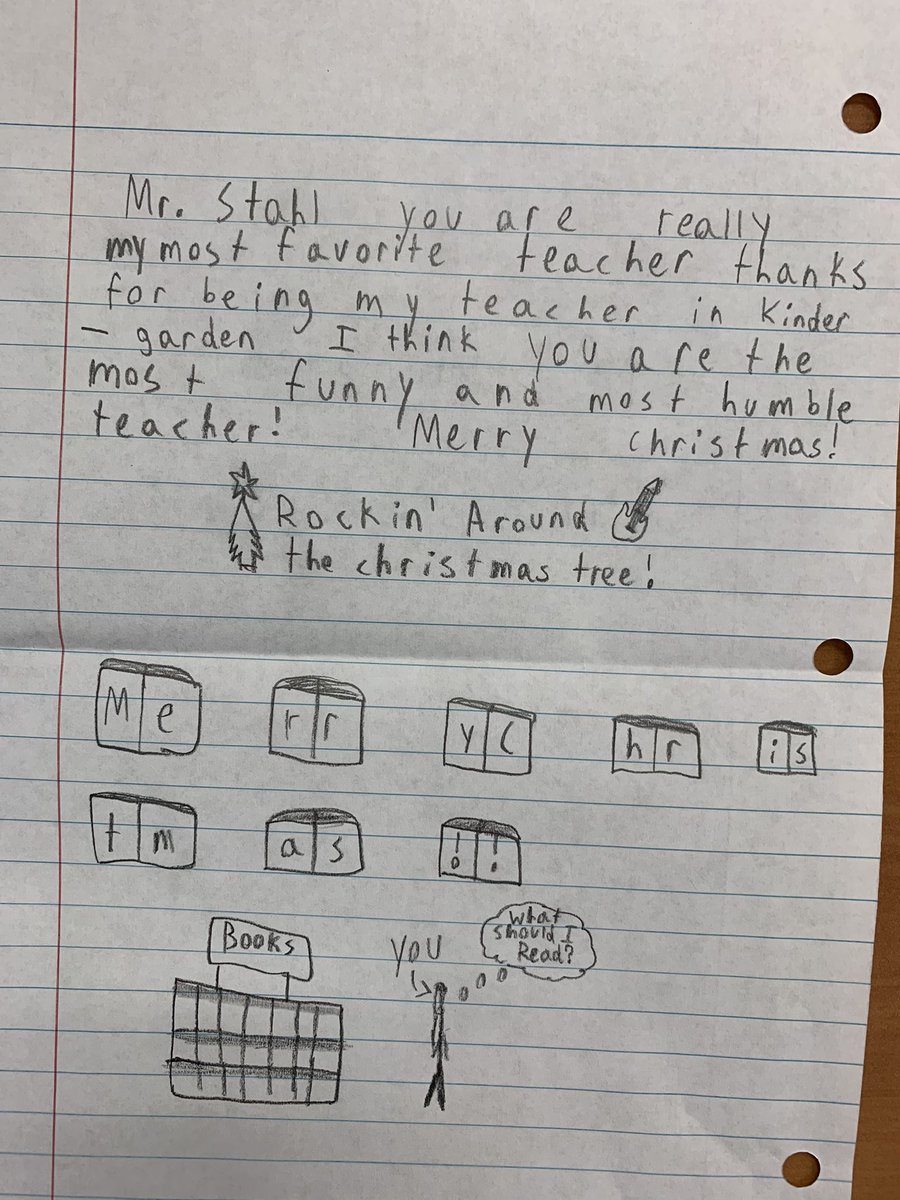 Mr. Stahl you are really
my most favorite teacher thanks
for being my teacher in Kinder
- garden I think you are the
most funny and most humble
teacher! Merry christmas!
Rockin' Around
the christmas tree!
M e r r y C h r i s
t m a s ! !
Books
YOU
What
should I
Read?